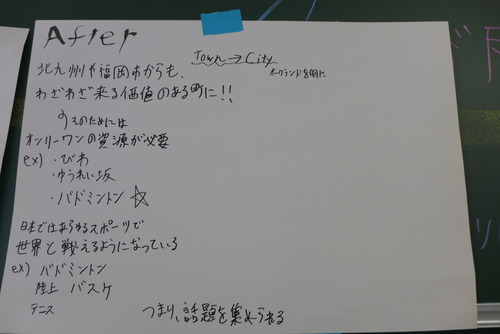 After
Town → City
オークランドを例に
北九州や福岡市からも、
わざわざ来る価値のある町に!!
そのためには
オンリーワンの資源が必要
ex) ・びわ
・ゆうれい坂
・バドミントン ☆
日本ではあらゆるスポーツで
世界と戦えるようになっている
ex) バドミントン
陸上 バスケ
テニス
つまり、話題を集められる